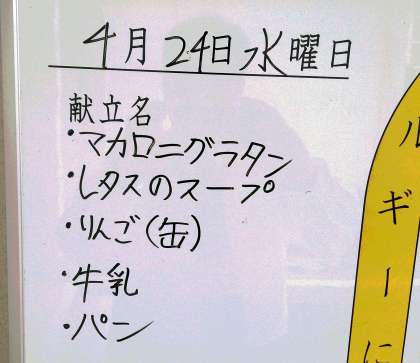 4月24日水曜日
献立名
・マカロニグラタン
・レタスのスープ
・りんご(缶)
・牛乳
・パン
ルギーに